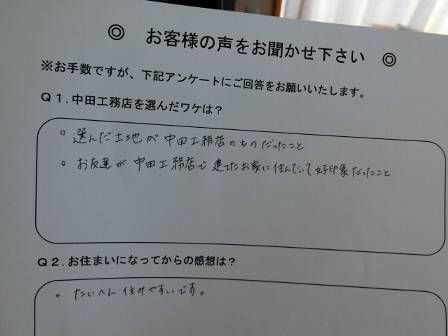 ◎ お客様の声をお聞かせ下さい ◎
※お手数ですが、下記アンケートにご回答をお願いいたします。
Q1.中田工務店を選んだワケは?
○ 選んだ土地が中田工務店のものだったこと
○ お友達が中田工務店で建てたお家に住んでいて好印象だったこと
Q2.お住まいになってからの感想は?
○ たいへん住みやすいです。